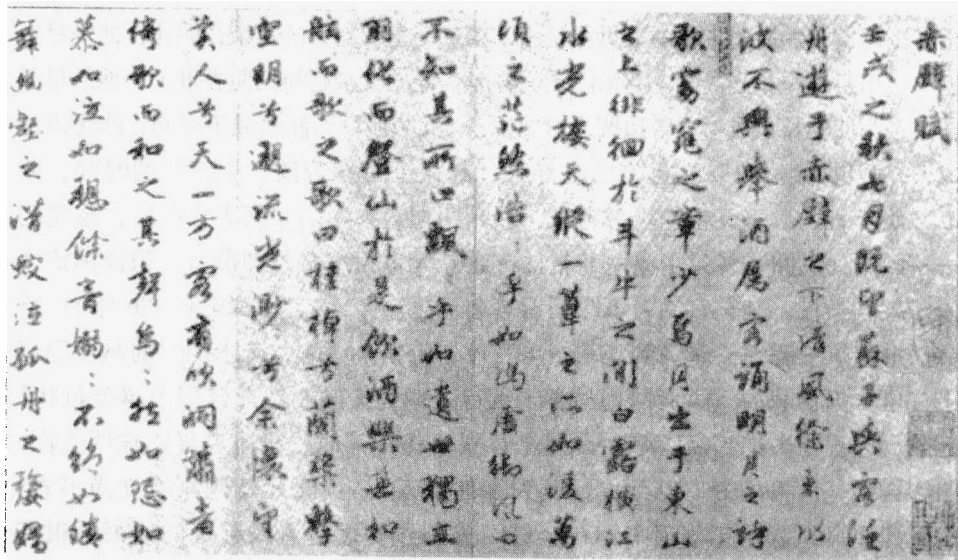 赤壁賦
壬戌之秋七月既望蘇子與客泛
舟遊于赤壁之下清風徐來水
波不興舉酒屬客誦明月之詩
歌窈窕之章少焉月出于東山
之上徘徊於斗牛之間白露橫江
水光接天縱一葦之所如凌萬
頃之茫然浩乎如馮虛御風而
不知其所止飄乎如遺世獨立
羽化而登仙於是飲酒樂甚扣
舷而歌之歌曰桂棹兮蘭槳擊
空明兮遡流光渺兮余懷望
美人兮天一方客有吹洞簫者
倚歌而和之其聲嗚〻然如怨如
慕如泣如愬餘音嫋〻不絕如縷
舞幽壑之潛蛟泣孤舟之嫠婦